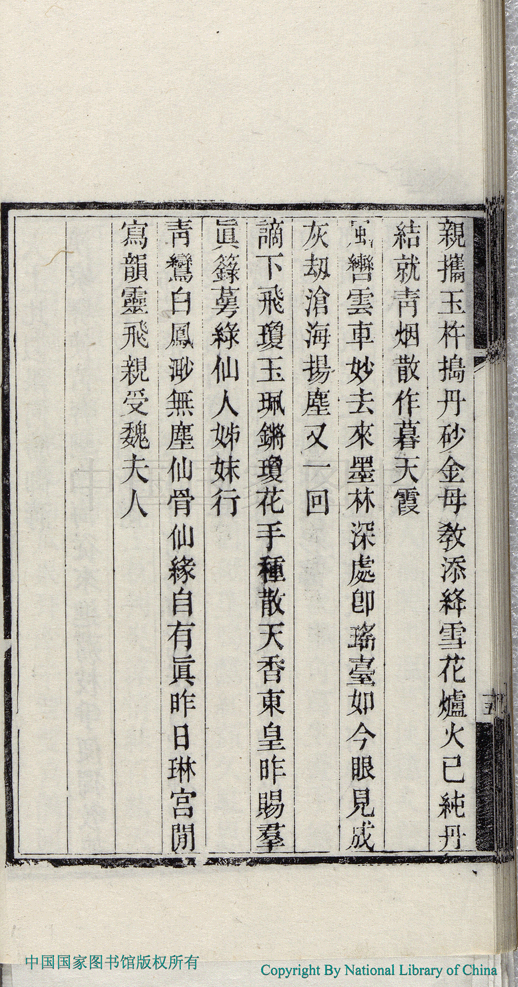 親攜玉杵搗丹砂金母敎添絳雪花爐火已純丹
結就靑烟散作暮天霞
風轡雲車妙去來墨林深處卽瑤臺如今眼見成
灰刼滄海揚塵又一回
謫下飛瓊玉珮鏘瓊花手種散天香東皇昨賜羣
眞籙蕚綠仙人姊妹行
靑鸞白鳳渺無塵仙骨仙緣自有眞昨日琳宮閒
寫韻靈飛親受魏夫人
中国国家图书馆版权所有
Copyright By National Library of China